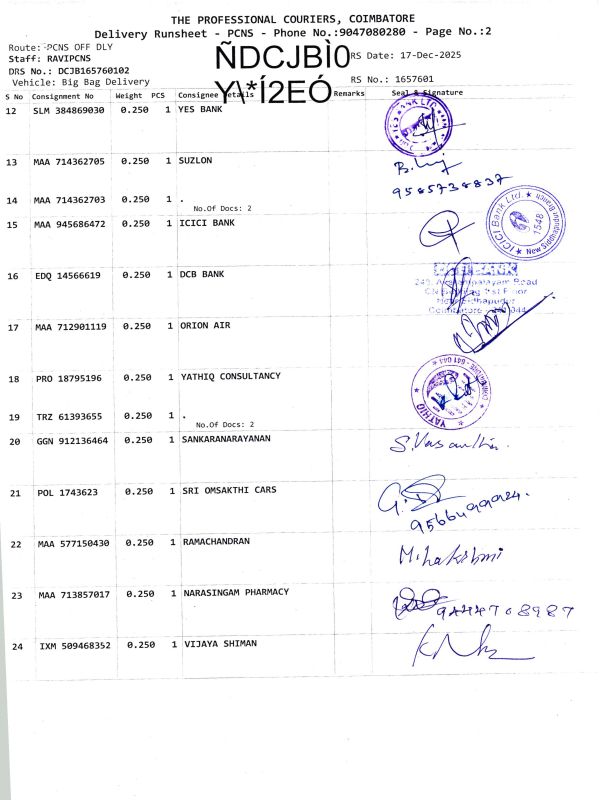 THE PROFESSIONAL COURIERS, COIMBATORE
Delivery Runsheet - PCNS - Phone No.:9047080280 - Page No.:2
Route: PCNS OFF DLY
Staff: RAVIPCNS
DRS No.: DCJB165760102
Vehicle: Big Bag Delivery
ÑDCJBÌ0
Y\*Í2EÓ
RS Date: 17-Dec-2025
RS No.: 1657601
S No Consignment No Weight PCS Consignee Details Remarks Seal & Signature
12 SLM 384869030 0.250 1 YES BANK
13 MAA 714362705 0.250 1 SUZLON
9585738837
14 MAA 714362703 0.250 1 .
No.Of Docs: 2
15 MAA 945686472 0.250 1 ICICI BANK
ICICI Bank Ltd. New Siddhapudur Branch 1548
16 EDQ 14566619 0.250 1 DCB BANK
17 MAA 712901119 0.250 1 ORION AIR
18 PRO 18795196 0.250 1 YATHIQ CONSULTANCY
YATHIQ
19 TRZ 61393655 0.250 1 .
No.Of Docs: 2
20 GGN 912136464 0.250 1 SANKARANARAYANAN
S. Vasantha.
21 POL 1743623 0.250 1 SRI OMSAKTHI CARS
22 MAA 577150430 0.250 1 RAMACHANDRAN
23 MAA 713857017 0.250 1 NARASINGAM PHARMACY
9444708987
24 IXM 509468352 0.250 1 VIJAYA SHIMAN